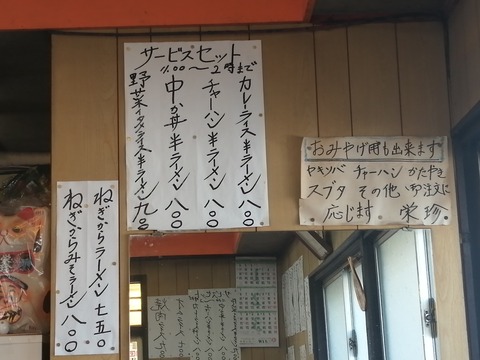 サービスセット
11.00〜2時まで
カレーライス半ラーメン 八〇〇
チャーハン半ラーメン 八〇〇
中か丼半ラーメン 八〇〇
野菜イタメライス半ラーメン 九〇〇
おみやげ用も出来ます
ヤキソバ チャーハン かたやき
スブタ その他 御注文に
応じます 栄珍
ねぎからラーメン 七五〇
ねぎからみそラーメン 八〇〇